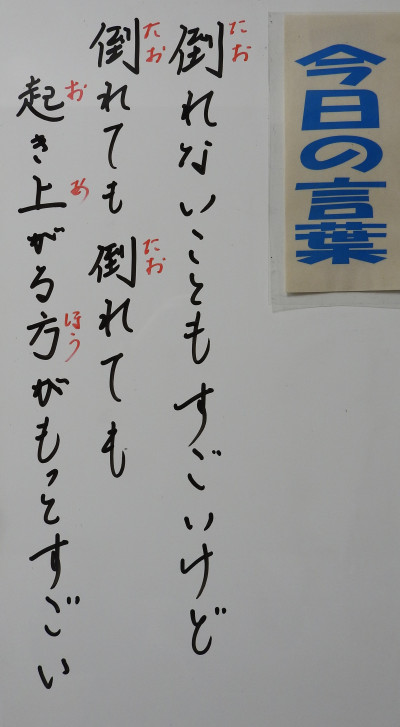 今日の言葉
倒れないこともすごいけど
たお
倒れても 倒れても
たお
たお
起き上がる方がもっとすごい
お
あ
ほう